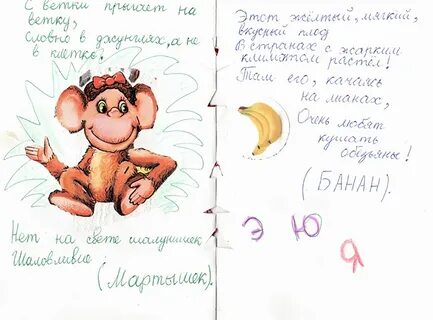 С ветки прыгает на
ветку,
Словно в джунглях, а не
в клетке.
Нет на свете шалунишек
Шаловливие
(Мартышек).
Этот жёлтый, мягкий,
вкусный плод
В странах с жарким
климатом растёт!
Там его, качаясь
на лианах,
Очень любят
кушать
обезьяны!
(БАНАН).
Э Ю
Я